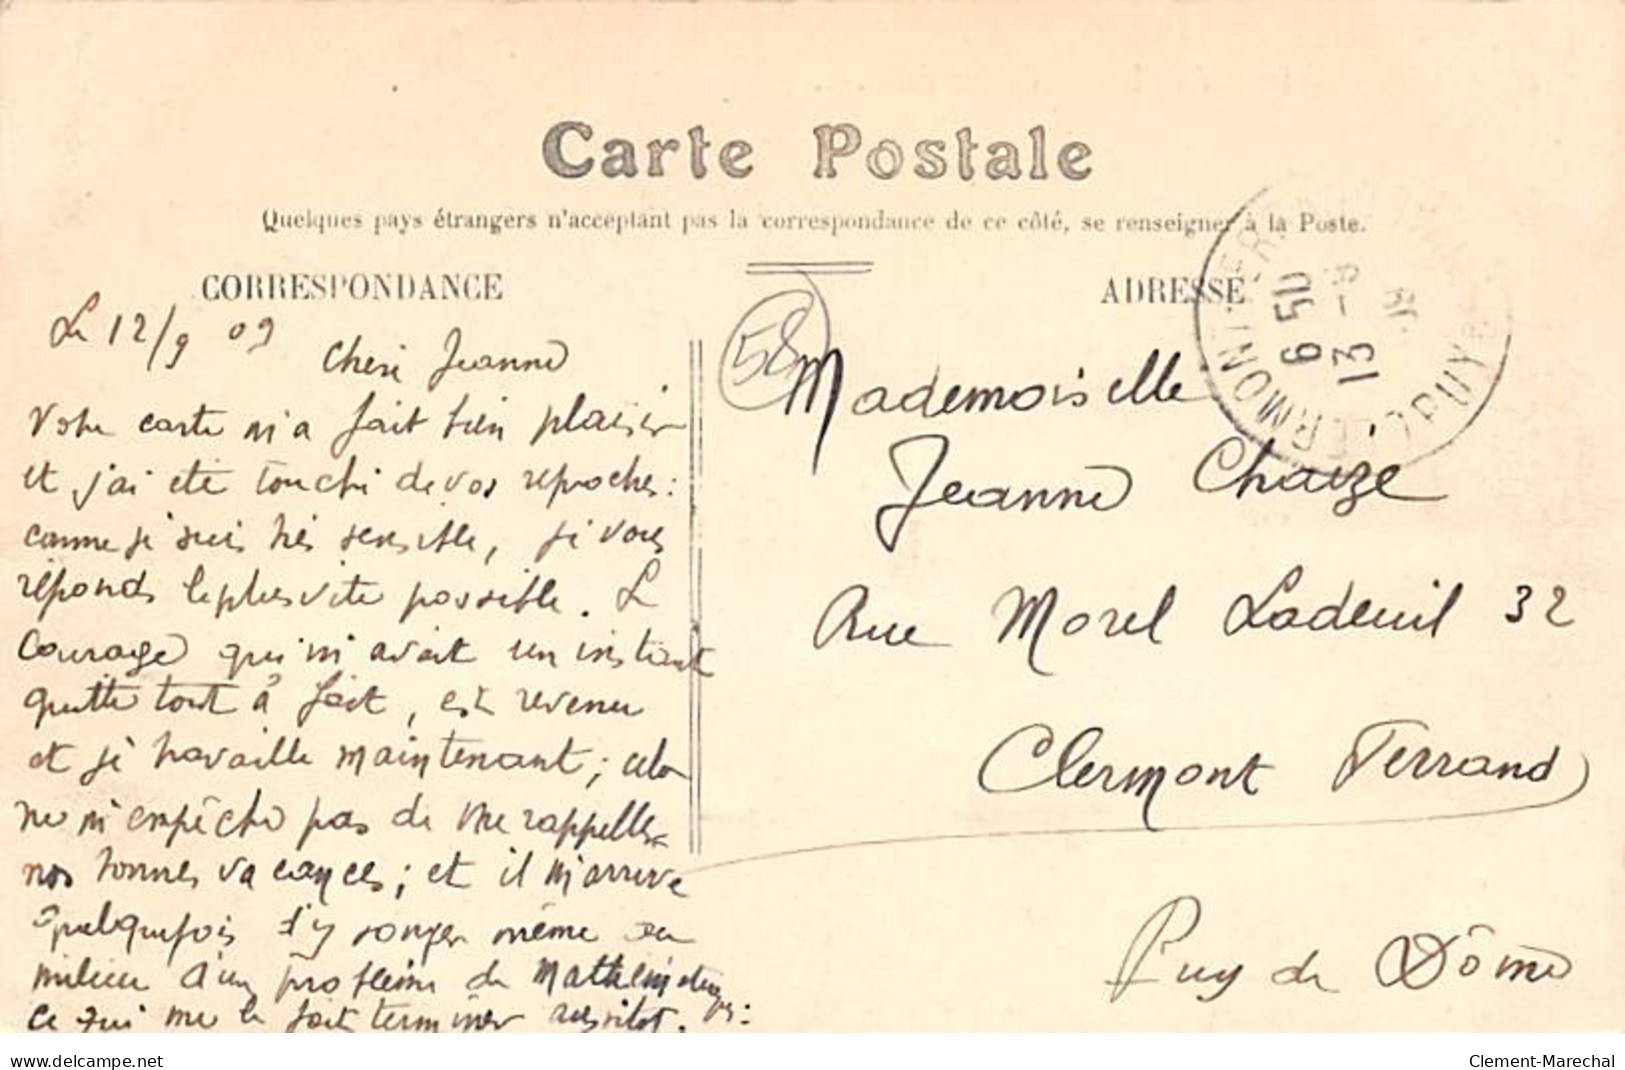 Carte Postale
Quelques pays étrangers n'acceptant pas la correspondance de ce côté, se renseigner à la Poste.
CORRESPONDANCE
Le 12/9 09
Chère Jeanne
Votre carte m'a fait bien plaisir
et j'ai été touché de vos reproches :
comme je suis très sensible, je vous
réponds le plus vite possible. Le
courage qui m'avait un instant
quitté tout à fait, est revenu
et je travaille maintenant ; cela
ne m'empêche pas de me rappeler
nos bonnes vacances ; et il m'arrive
quelquefois d'y songer même au
milieu d'un problème de Mathématiques :
ce qui me le fait terminer aussitôt.
ADRESSE
58
Mademoiselle
Jeanne Chaize
Rue Morel Ladeuil 32
Clermont Ferrand
Puy de Dôme
CLERMONT-FERRAND
6 50
13 - 9
09
PUY
www.delcampe.net
Clement-Marechal